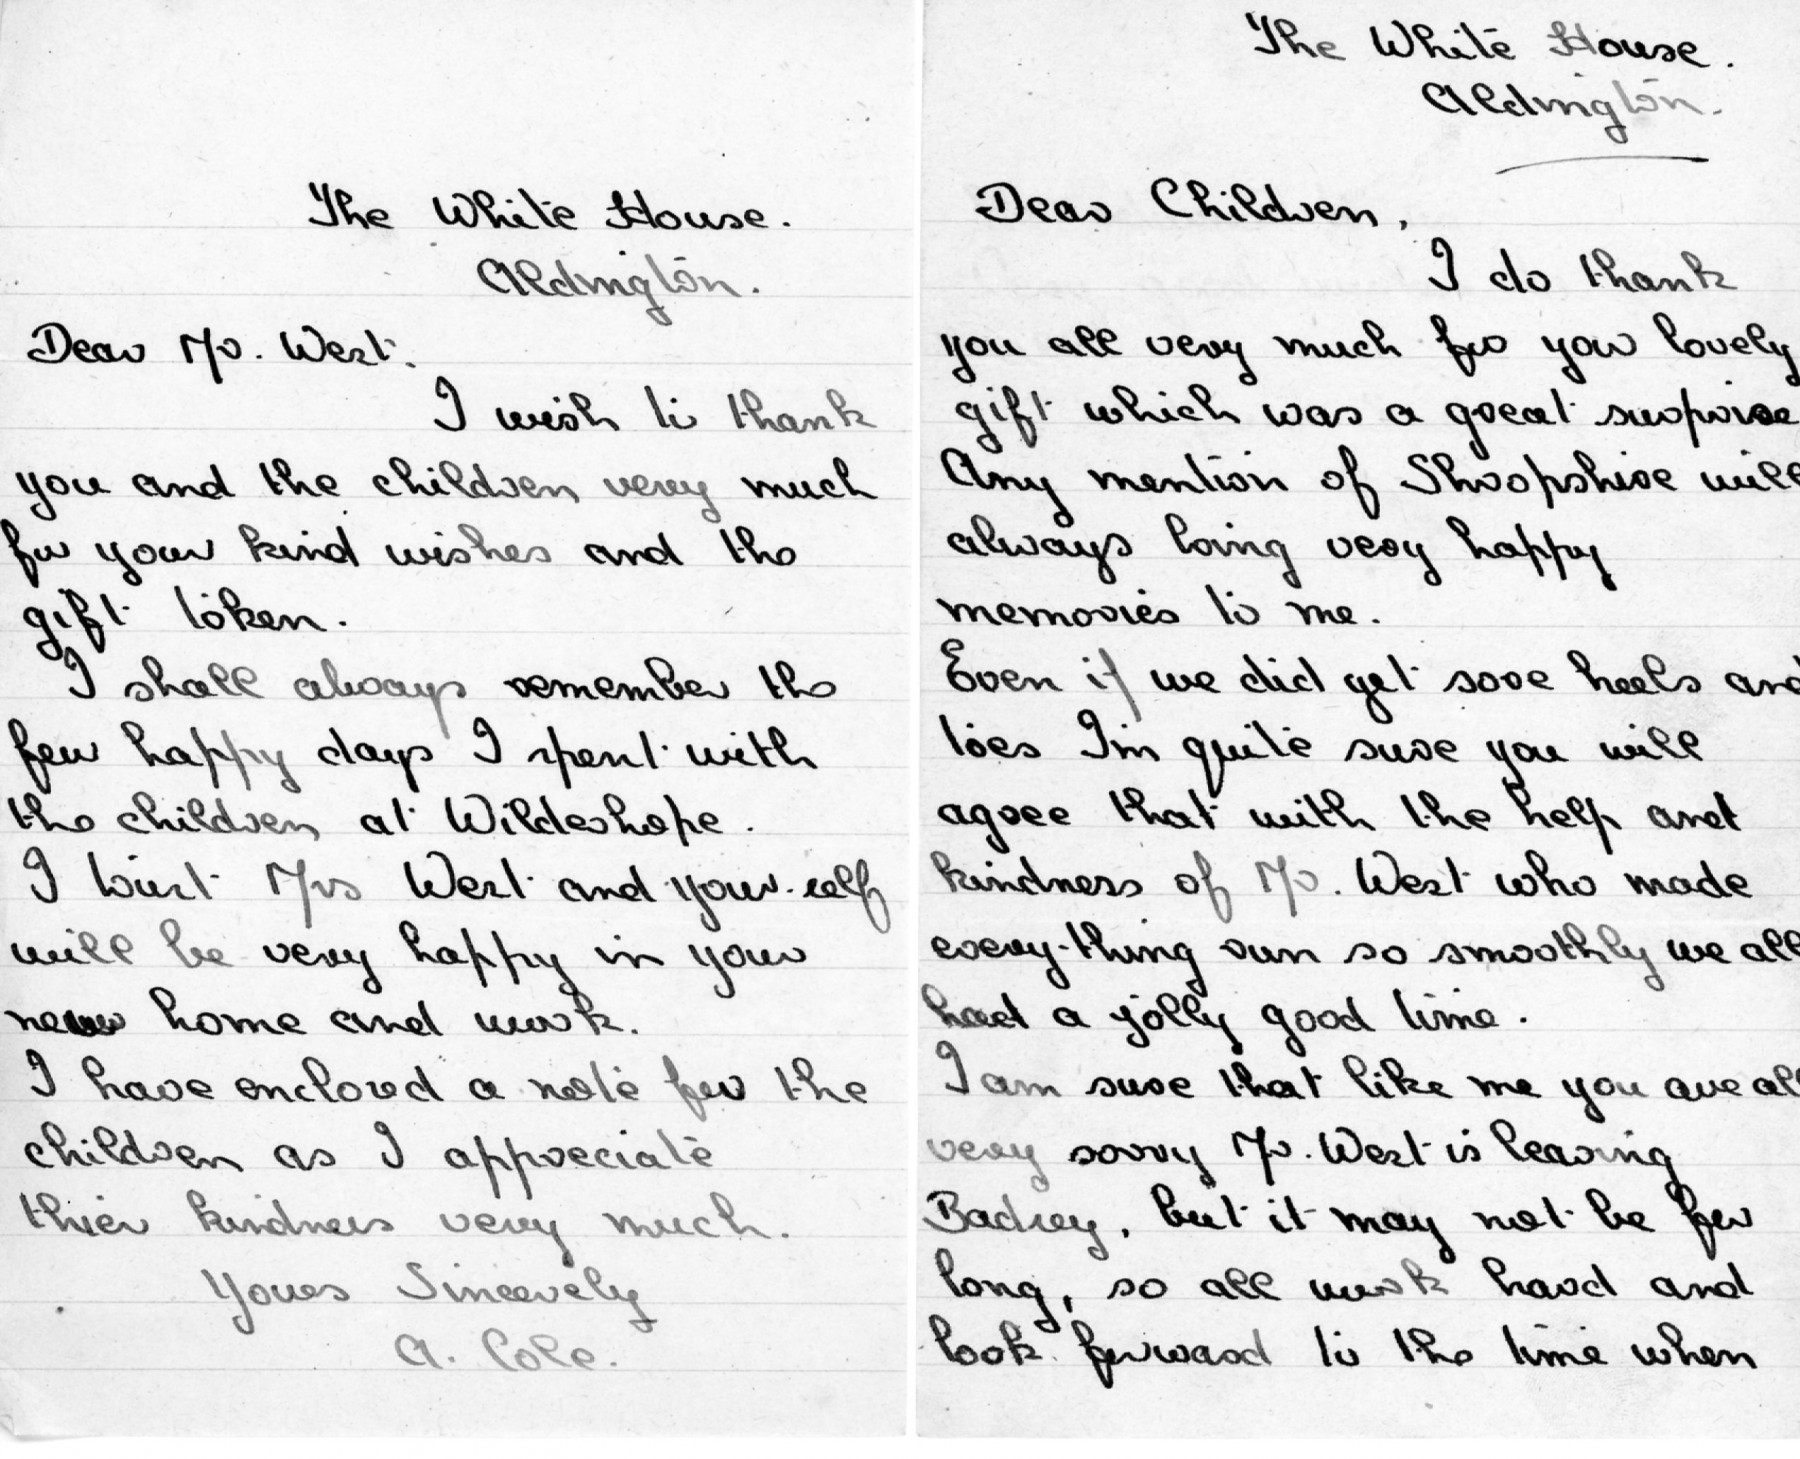 The White House.
Aldington.
Dear Mr. West.
I wish to thank
you and the children very much
for your kind wishes and the
gift token.
I shall always remember the
few happy days I spent with
the children at Wildeshope.
I trust Mrs West and your-self
will be very happy in your
new home and work.
I have enclosed a note for the
children as I appreciate
thier kindness very much.
Yours Sincerely
A. Cole.
The White House.
Aldington.
Dear Children,
I do thank
you all very much for your lovely
gift which was a great surprise
Any mention of Shropshire will
always bring very happy
memories to me.
Even if we did get sore heels and
toes I'm quite sure you will
agree that with the help and
kindness of Mr. West who made
every-thing run so smoothly we all
had a jolly good time.
I am sure that like me you are all
very sorry Mr. West is leaving
Badsey, but it may not be for
long, so all work hard and
look forward to the time when